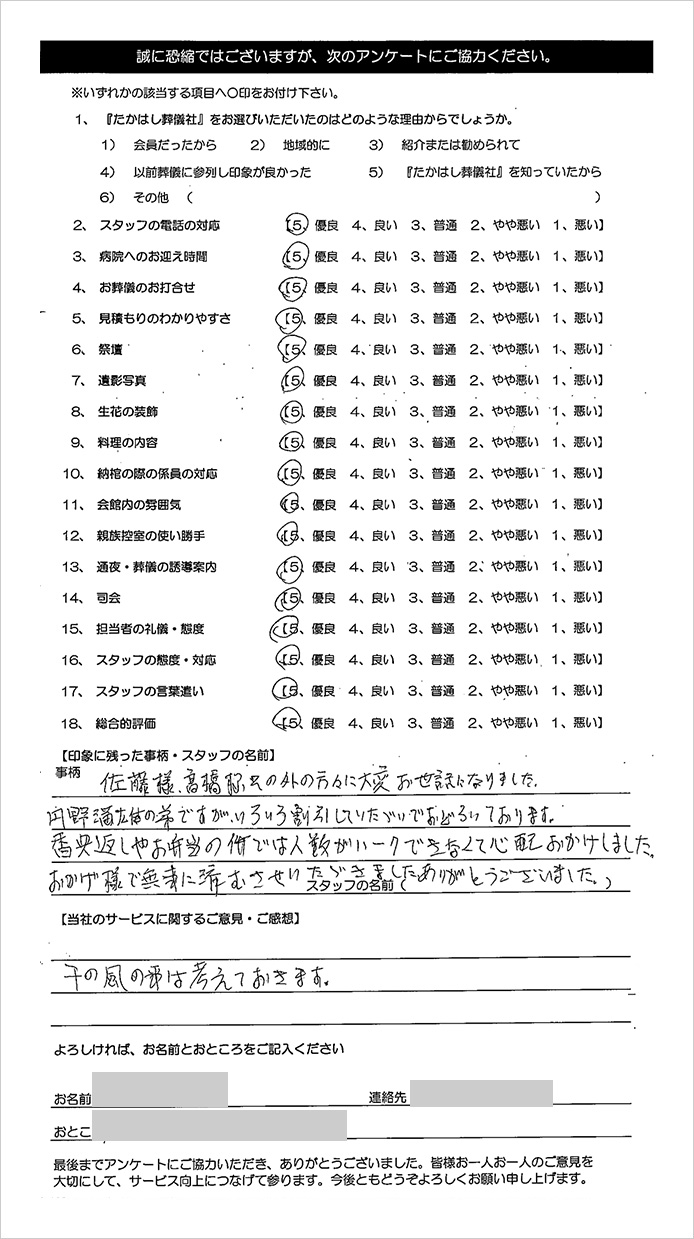 誠に恐縮ではございますが、次のアンケートにご協力ください。
※いずれかの該当する項目へ〇印をお付け下さい。
1、 『たかはし葬儀社』をお選びいただいたのはどのような理由からでしょうか。
1） 会員だったから 2） 地域的に 3） 紹介または勧められて
4） 以前葬儀に参列し印象が良かった 5） 『たかはし葬儀社』を知っていたから
6） その他 （ ）
2、 スタッフの電話の対応 【5、優良 4、良い 3、普通 2、やや悪い 1、悪い】
3、 病院へのお迎え時間 【5、優良 4、良い 3、普通 2、やや悪い 1、悪い】
4、 お葬儀のお打合せ 【5、優良 4、良い 3、普通 2、やや悪い 1、悪い】
5、 見積もりのわかりやすさ 【5、優良 4、良い 3、普通 2、やや悪い 1、悪い】
6、 祭壇 【5、優良 4、良い 3、普通 2、やや悪い 1、悪い】
7、 遺影写真 【5、優良 4、良い 3、普通 2、やや悪い 1、悪い】
8、 生花の装飾 【5、優良 4、良い 3、普通 2、やや悪い 1、悪い】
9、 料理の内容 【5、優良 4、良い 3、普通 2、やや悪い 1、悪い】
10、 納棺の際の係員の対応 【5、優良 4、良い 3、普通 2、やや悪い 1、悪い】
11、 会館内の雰囲気 【5、優良 4、良い 3、普通 2、やや悪い 1、悪い】
12、 親族控室の使い勝手 【5、優良 4、良い 3、普通 2、やや悪い 1、悪い】
13、 通夜・葬儀の誘導案内 【5、優良 4、良い 3、普通 2、やや悪い 1、悪い】
14、 司会 【5、優良 4、良い 3、普通 2、やや悪い 1、悪い】
15、 担当者の礼儀・態度 【5、優良 4、良い 3、普通 2、やや悪い 1、悪い】
16、 スタッフの態度・対応 【5、優良 4、良い 3、普通 2、やや悪い 1、悪い】
17、 スタッフの言葉遣い 【5、優良 4、良い 3、普通 2、やや悪い 1、悪い】
18、 総合的評価 【5、優良 4、良い 3、普通 2、やや悪い 1、悪い】
【印象に残った事柄・スタッフの名前】
事柄 佐藤様、高橋様その外の方々に大変お世話になりました。
の弟ですが、いろいろ割引していただいておどろいております。
香典返しやお弁当の件では人数がハークできなくて心配おかけしました。
おかげ様で無事に済むさせいただきましたありがとうございました。
スタッフの名前（ ）
【当社のサービスに関するご意見・ご感想】
の風の は考えておきます。
よろしければ、お名前とおところをご記入ください
お名前 連絡先
おとこ
最後までアンケートにご協力いただき、ありがとうございました。皆様お一人お一人のご意見を
大切にして、サービス向上につなげて参ります。今後ともどうぞよろしくお願い申し上げます。